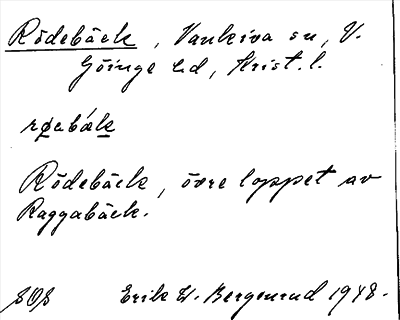 Rödebäck, Vankiva sn, V.
Göinge hd, Krist. l.
røebák
Rödebäck, övre loppet av
Raggabäck.
SOS Erik W. Bergonrud 1948.